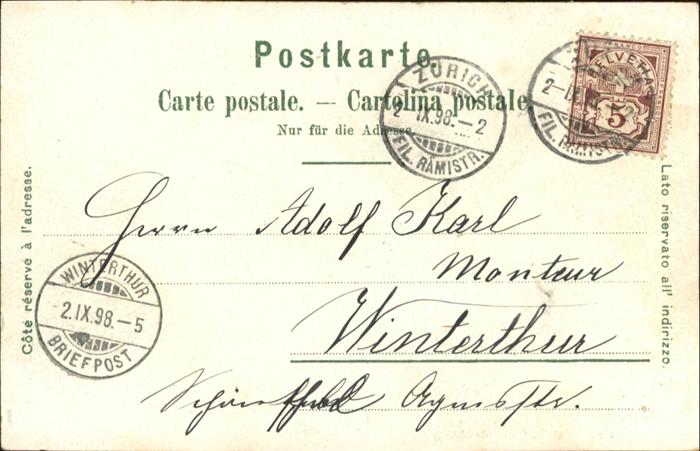 Postkarte.
Carte postale. — Cartolina postale.
Nur für die Adresse.
ZÜRICH
2.IX.98.–2
FIL. RÄMISTR.
HELVETIA
5
2.IX.98
FIL. RÄMISTR.
Côté réservé à l'adresse.
Lato riservato all' indirizzo.
Herrn Adolf Karl
Monteur
Winterthur
Agnesstr.
WINTERTHUR
2.IX.98.–5
BRIEFPOST